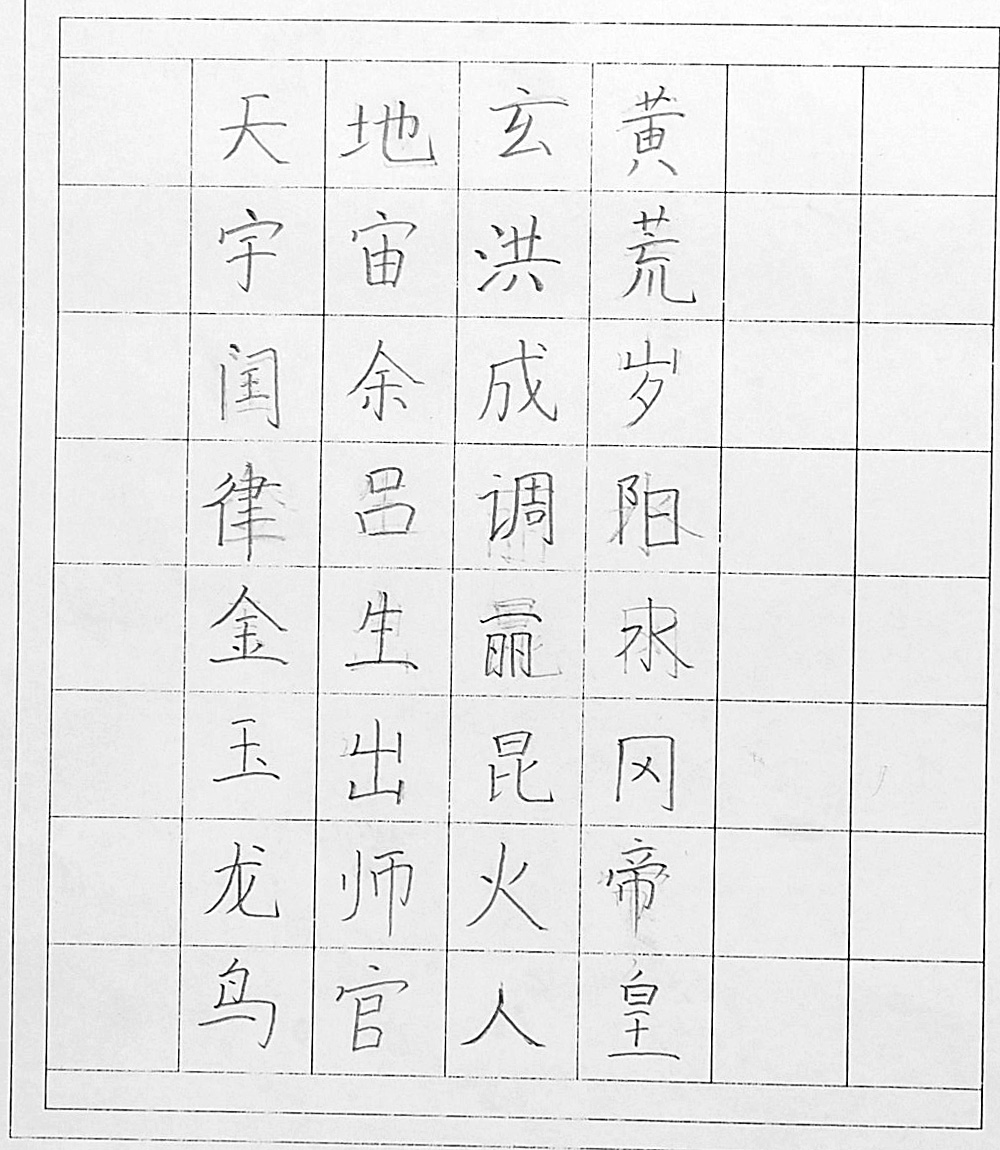 天地玄黄
宇宙洪荒
闰余成岁
律吕调阳
金生丽水
玉出昆冈
龙师火帝
鸟官人皇